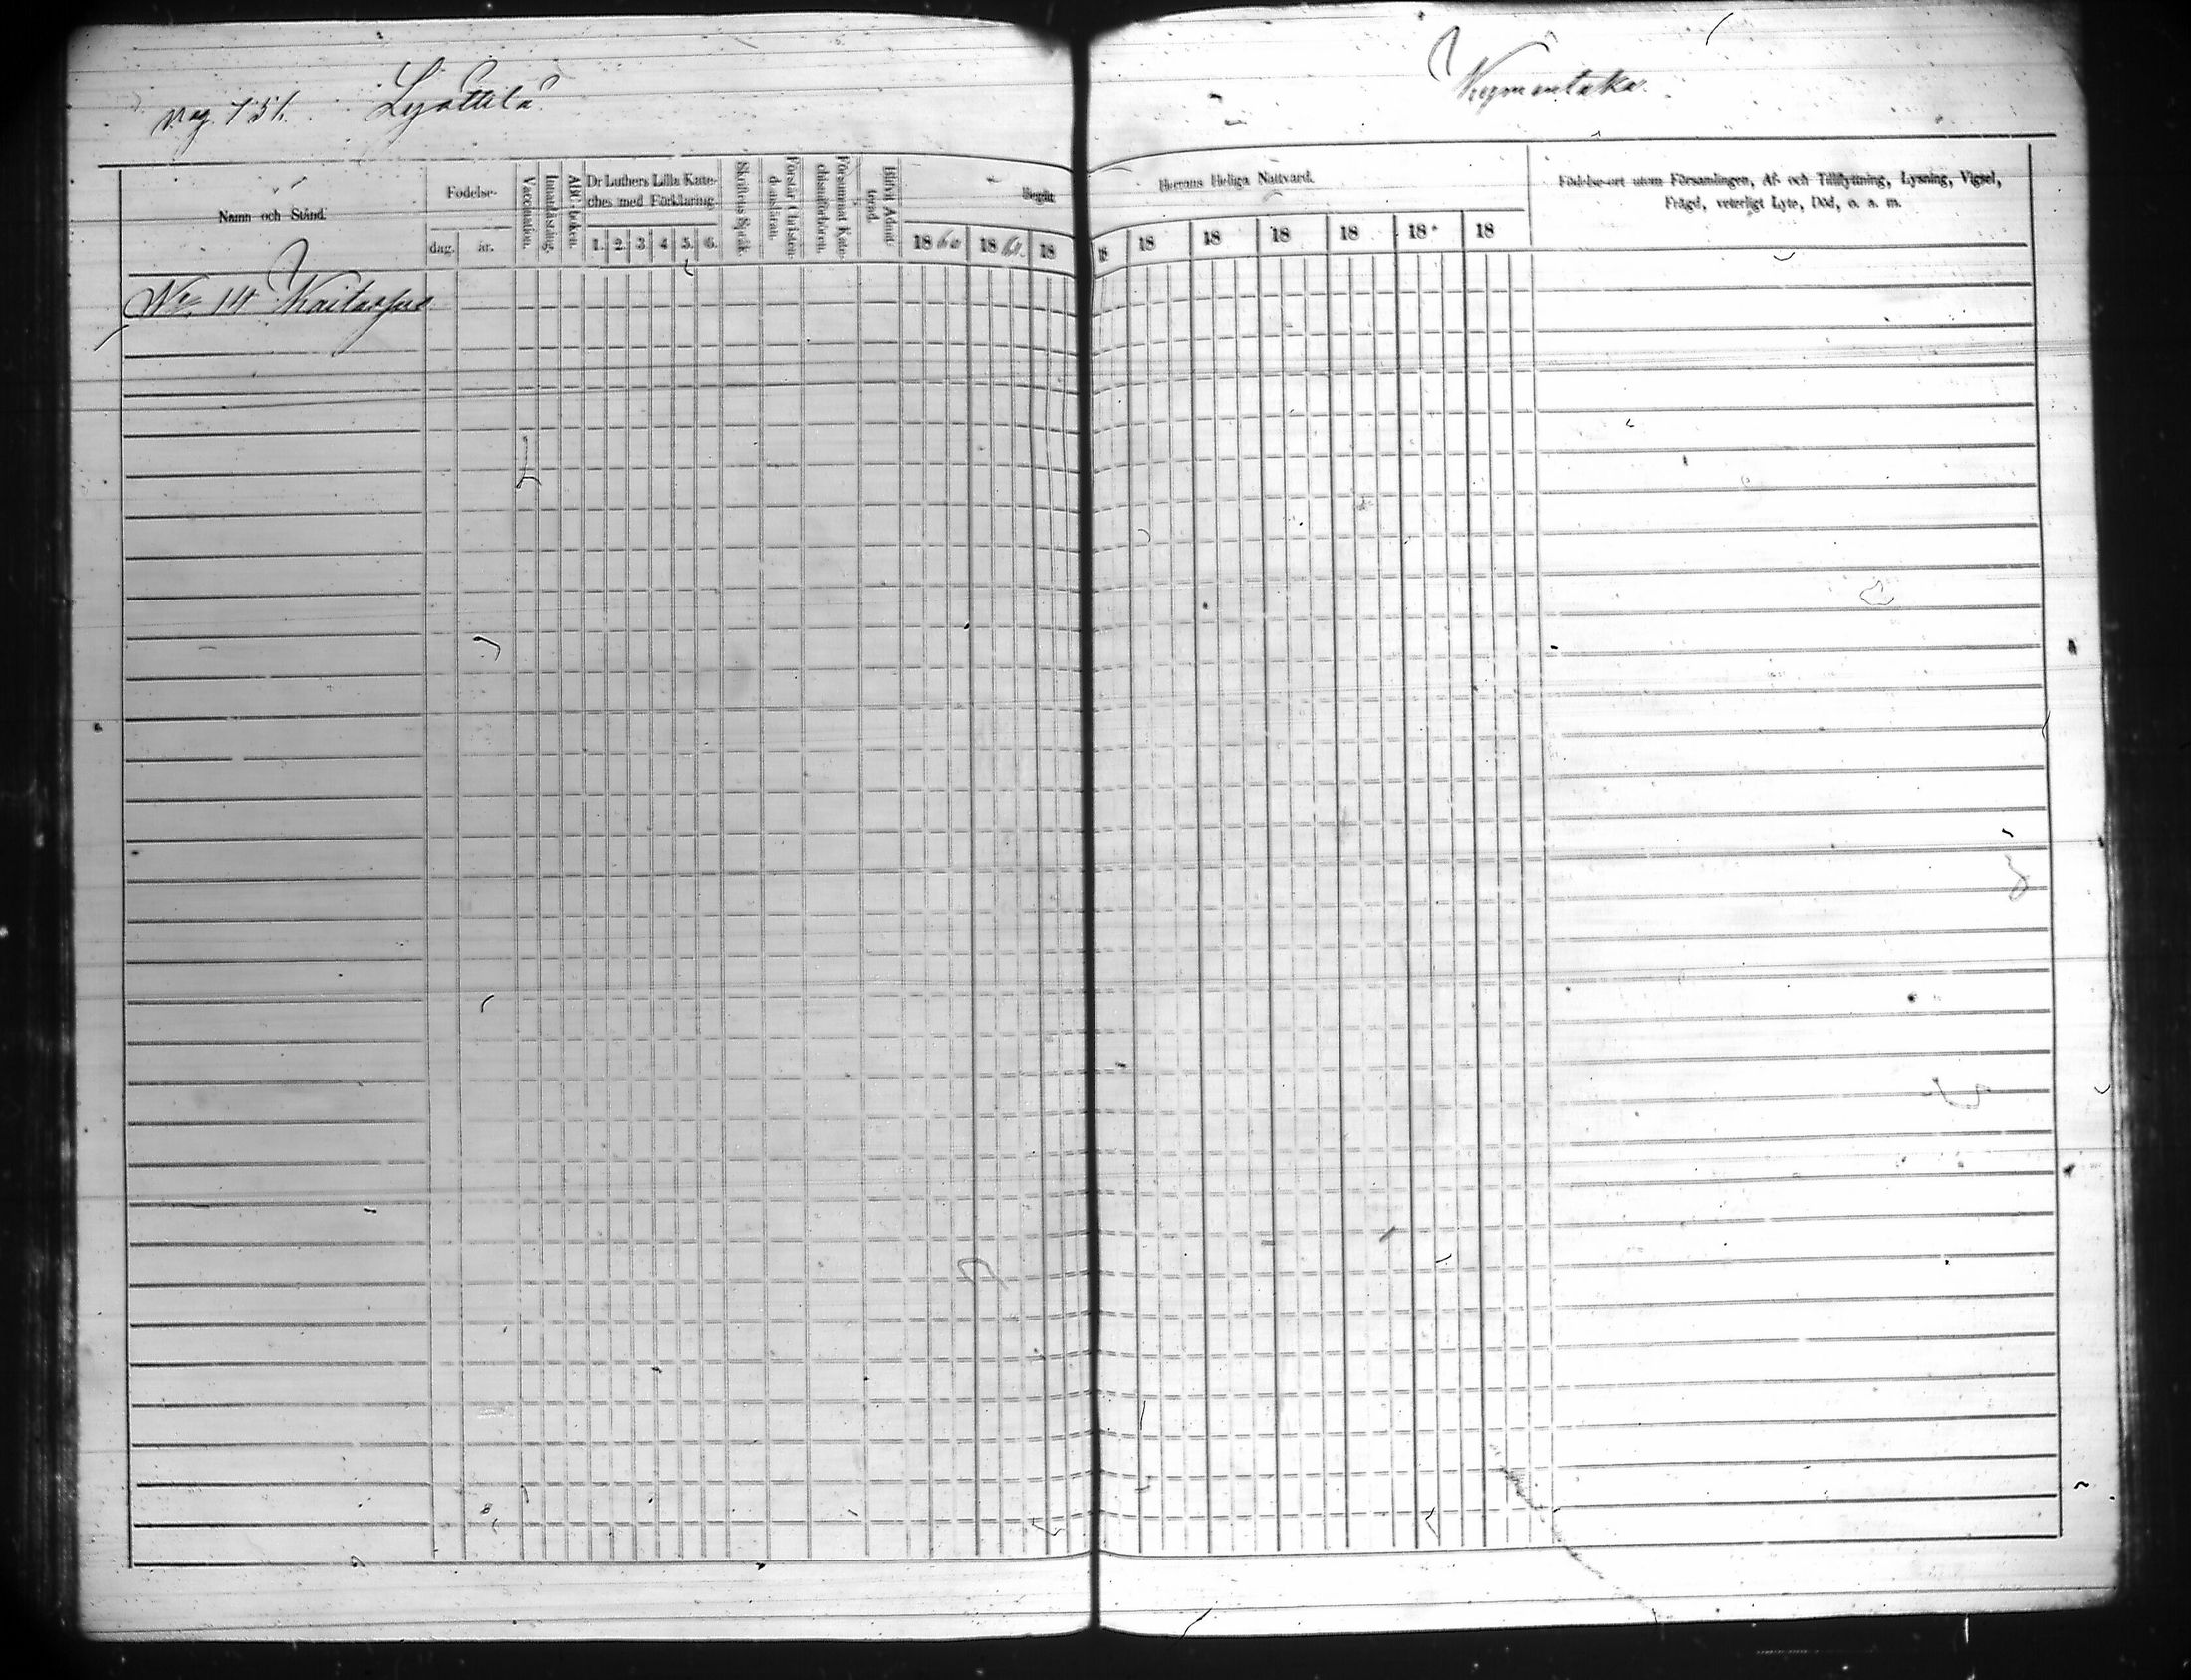 pag. 131. Lyöttilä
Kymentaka
Namn och Stånd.
Födelse-
dag. år.
Vaccination.
Innanläsning.
ABC-boken.
Dr Luthers Lilla Kate-
ches med Förklaring.
1. 2. 3. 4. 5. 6.
Skriftens Språk.
Förstår Christen-
domsläran.
Försummat Kate-
chismiförhören.
Blifvit Admit-
terad.
Begått
Herrans Heliga Nattvard.
1860 1861. 18 18 18 18 18 18 18 18
Födelse-ort utom Församlingen, Af- och Tillflyttning, Lysning, Vigsel,
Frägd, veterligt Lyte, Död, o. a. m.
No 14